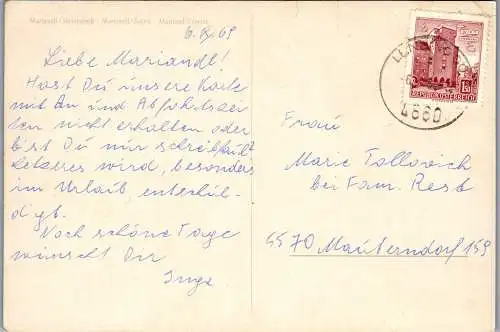 Mariazell/Steiermark - Mariazell/Styria - Mariazell/Styrie
6. IX. 69
Liebe Mariandl!
Hast Du unsere Karte
mit An und Abfahrtszei-
ten nicht erhalten oder
bist Du nur schreibfaul?
Letzteres wird, besonders
im Urlaub, entschul-
digt.
Noch schöne Tage
wünscht Dir
Inge
4660
REPUBLIK ÖSTERREICH
Frau
Marie Tallovich
bei Fam. Rest
5570 Mauterndorf 159